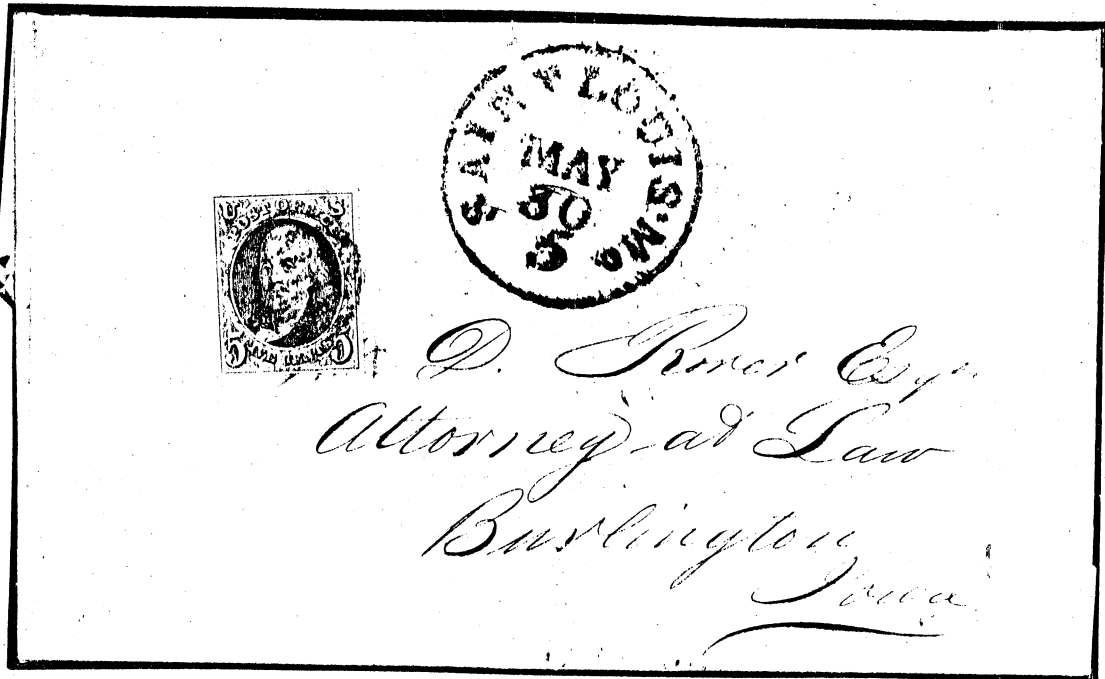 SAINT LOUIS. Mo.
MAY
30
5
U S
POST OFFICE
5 5
D. Rorer Esqr
Attorney at Law
Burlington
Iowa